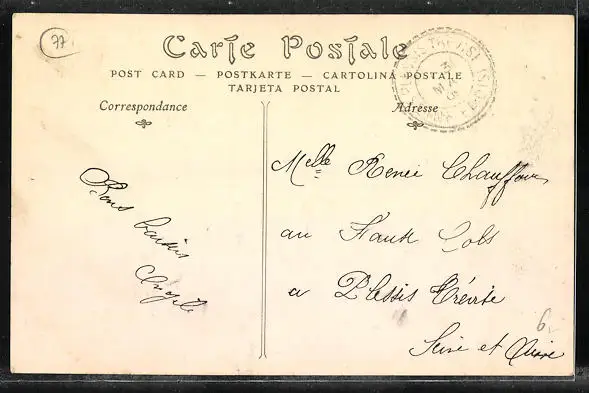 77
Carte Postale
POST CARD — POSTKARTE — CARTOLINA POSTALE
TARJETA POSTAL
Correspondance
Adresse
Melle Renée Chauffour
Bons baisers
au Haut
Angèle
a Plessis
Seine et
6.-